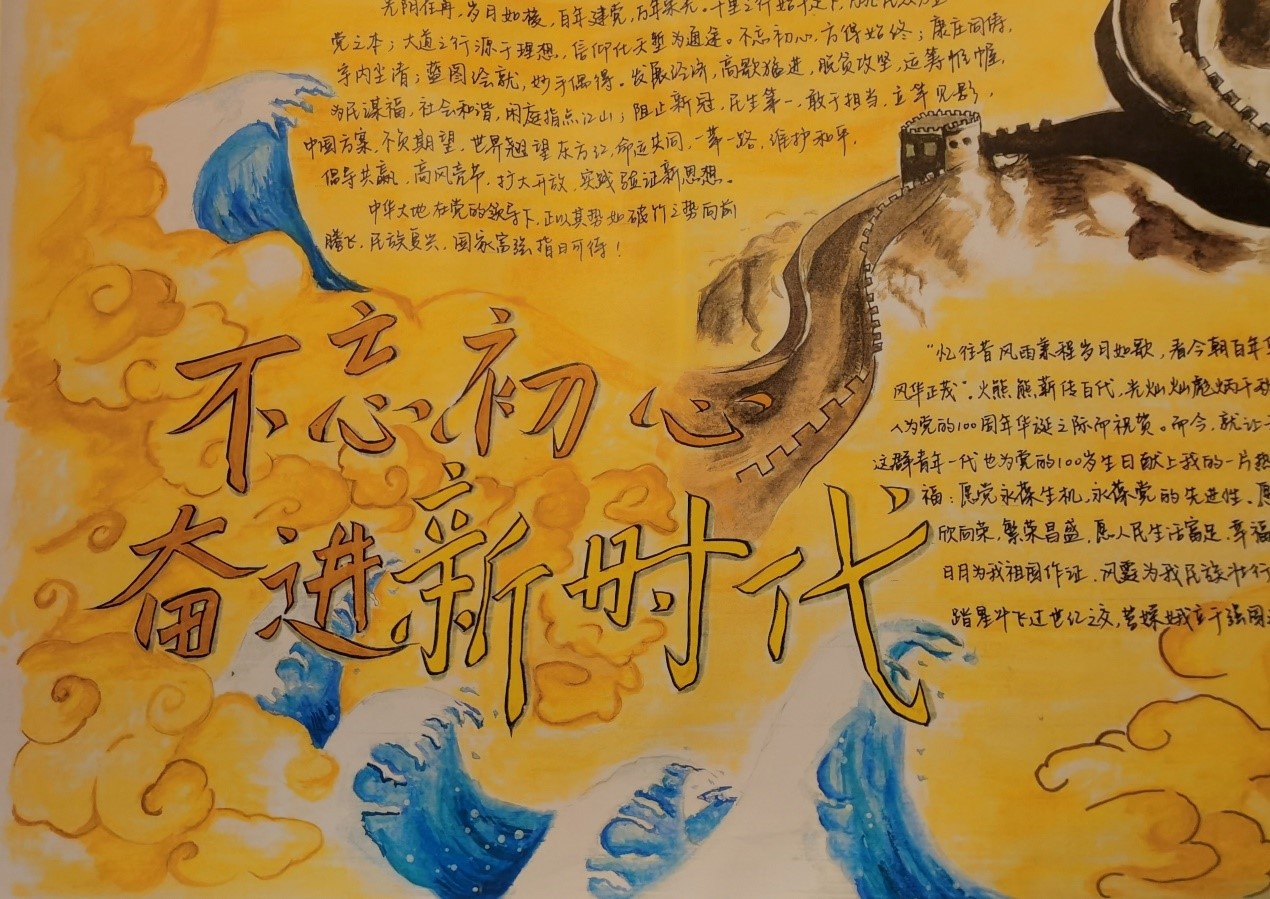 光阴荏苒，岁月如梭，百年建党，百年荣光。千里之行始于足下，
党之本；大道之行源于理想，信仰化天堑为通途。不忘初心，方得始终；康庄同侍，
宇内尘清；蓝图绘就，妙手偶得。发展经济，高歌猛进，脱贫攻坚，运筹帷幄，
为民谋福，社会和谐，闲庭指点江山；阻止新冠，民生第一，敢于担当，立竿见影，
中国方案，不负期望，世界翘望东方红，命运共同，一带一路，维护和平，
倡导共赢，高风亮节，扩大开放，实践验证新思想。
中华大地在党的领导下，正以其势如破竹之势向前
腾飞，民族复兴，国家富强指日可待！
不忘初心
奋进新时代
“忆往昔风雨兼程岁月如歌，看今朝百年
风华正茂”。火熊熊，薪传百代，光灿灿彪炳千秋
人为党的100周年华诞之际所祝贺。而今，就让
这群青年一代也为党的100岁生日献上我的一片热
福：愿党永葆生机，永葆党的先进性。愿
欣向荣，繁荣昌盛，愿人民生活富足，幸福
日月为我祖国作证，风霞为我民族壮行
踏星斗飞过世纪之交，共嫦娥立于强国